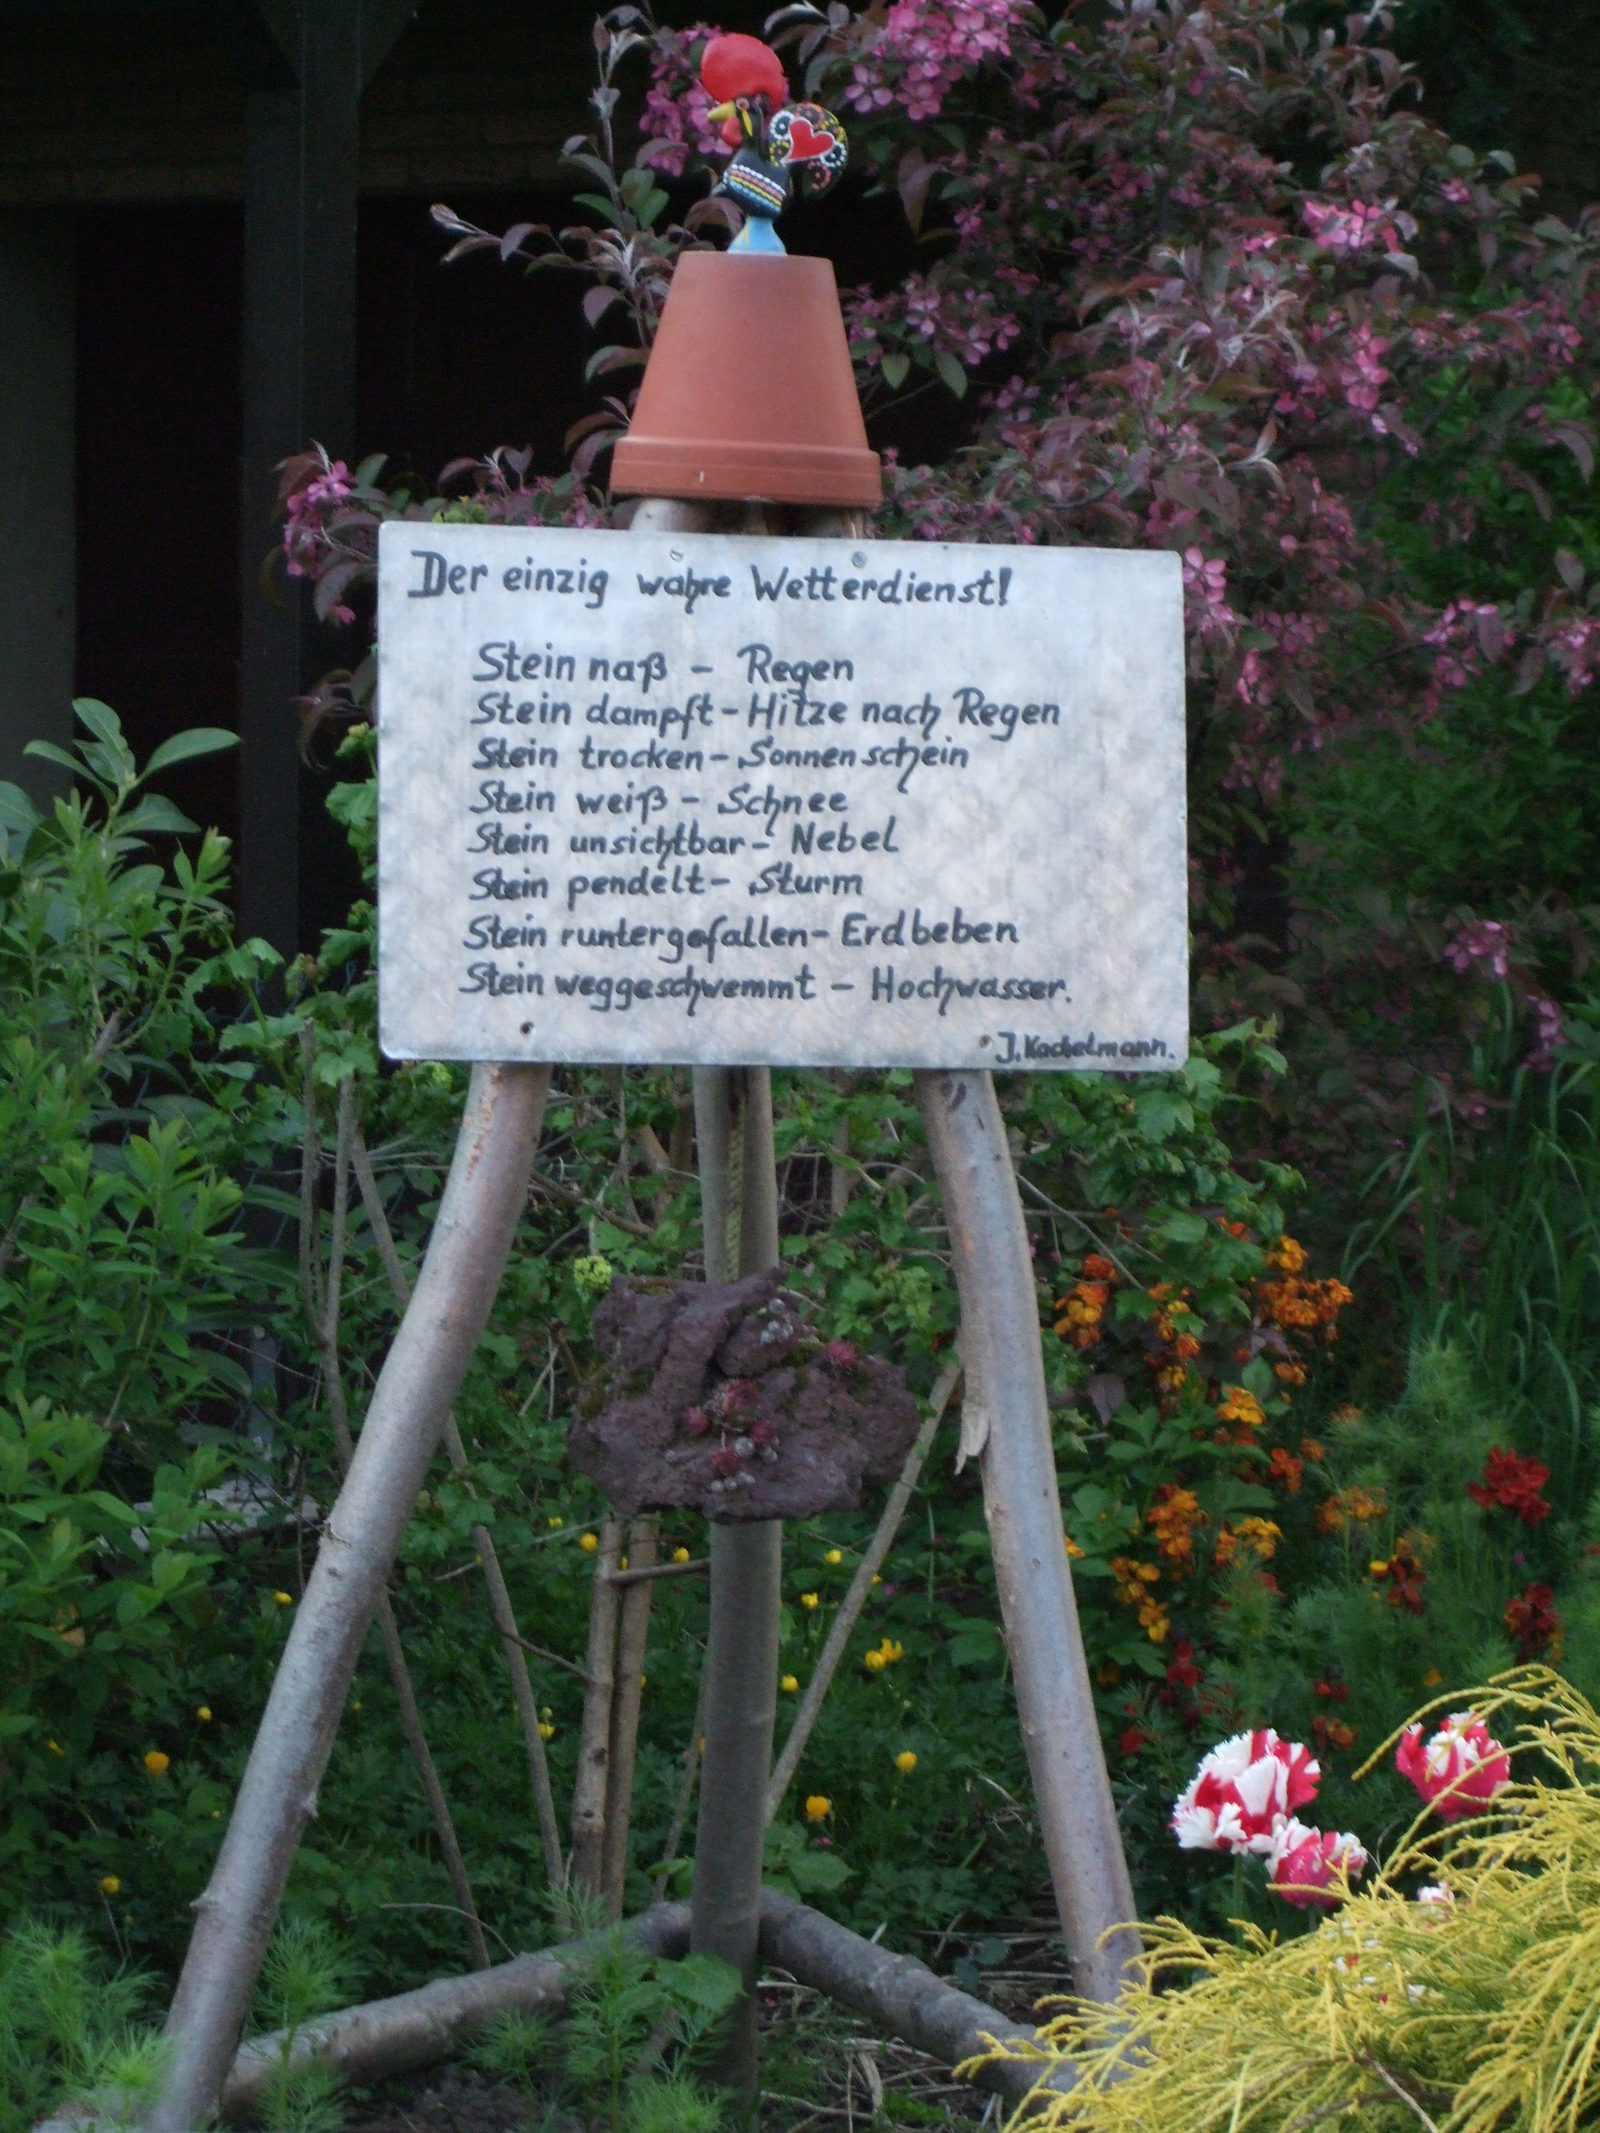 Der einzig wahre Wetterdienst!
Stein naß - Regen
Stein dampft - Hitze nach Regen
Stein trocken - Sonnenschein
Stein weiß - Schnee
Stein unsichtbar - Nebel
Stein pendelt - Sturm
Stein runtergefallen - Erdbeben
Stein weggeschwemmt - Hochwasser.
J. Kachelmann.